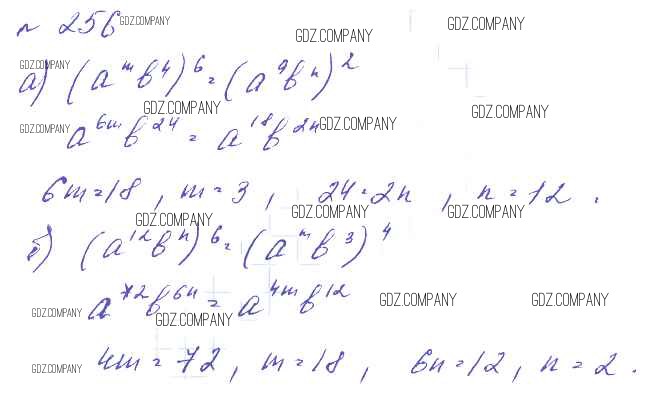 № 256 GDZ.COMPANY GDZ.COMPANY GDZ.COMPANY
GDZ.COMPANY
а) (a^m b^4)^6 = (a^9 b^n)^2
GDZ.COMPANY GDZ.COMPANY
GDZ.COMPANY a^6m b^24 = a^18 b^2n GDZ.COMPANY
6m=18, m=3, 24=2n, n=12.
GDZ.COMPANY GDZ.COMPANY GDZ.COMPANY
б) (a^12 b^n)^6 = (a^m b^3)^4
GDZ.COMPANY a^72 b^6n = a^4m b^12 GDZ.COMPANY GDZ.COMPANY
GDZ.COMPANY
GDZ.COMPANY 4m=72, m=18, 6n=12, n=2.